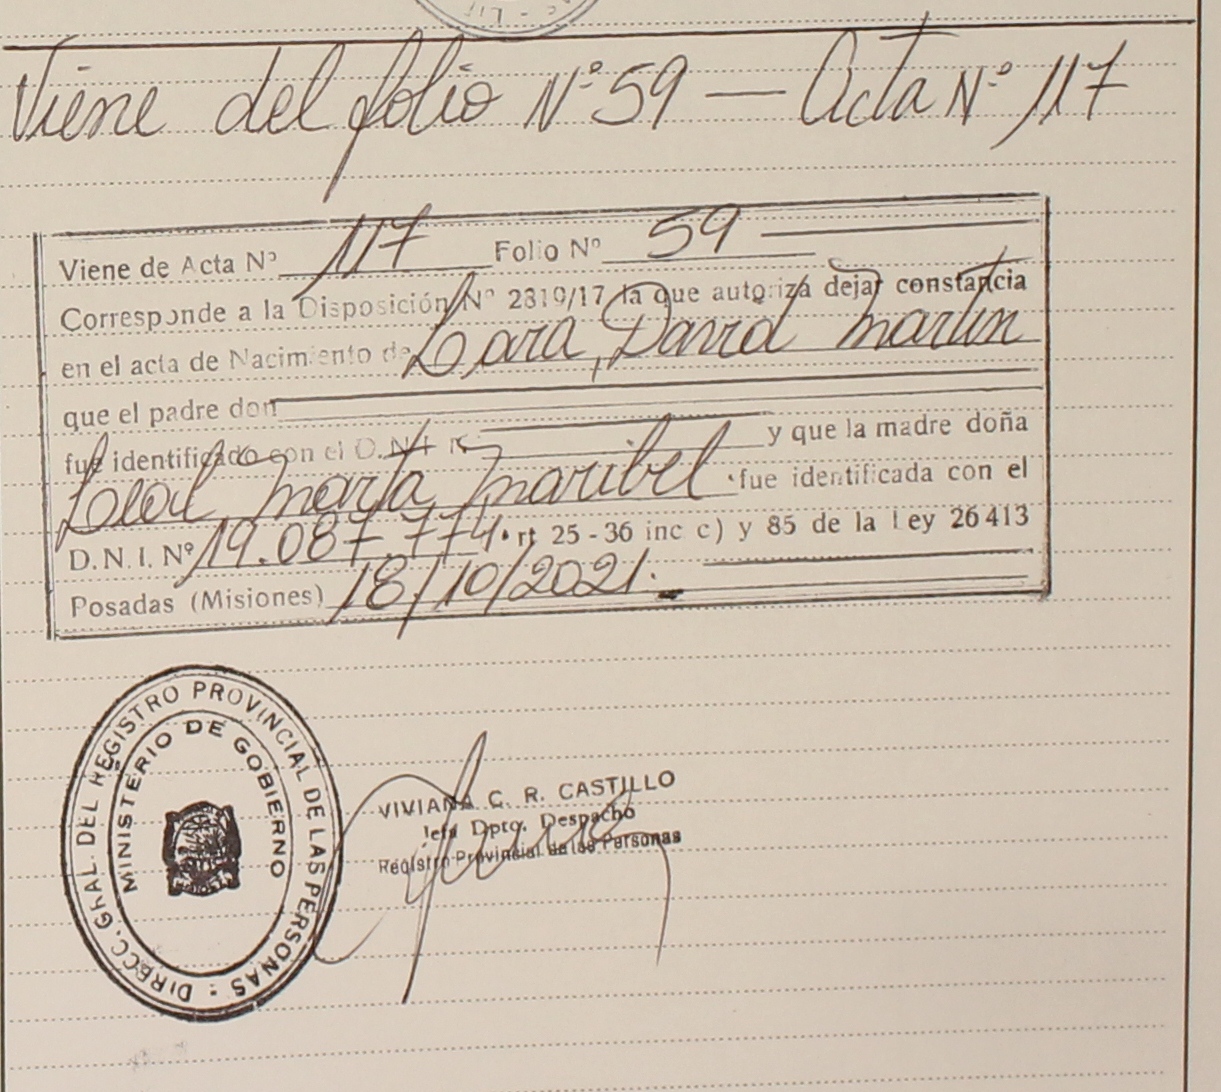 Viene del folio Nº 59 — Acta Nº 117
Viene de Acta Nº 117 Folio Nº 59
Corresponde a la Disposición Nº 2819/17 la que autoriza dejar constancia
en el acta de Nacimiento de Lara, David Martin
que el padre don
fue identificado con el D.N.I. N y que la madre doña
Leal, Marta Maribel fue identificada con el
D.N.I. Nº 19.087.774. rt 25-36 inc c) y 85 de la ley 26413
Posadas (Misiones) 18/10/2021.
DIRECC. GRAL. DEL REGISTRO PROVINCIAL DE LAS PERSONAS
MINISTERIO DE GOBIERNO
VIVIANA C. R. CASTILLO
Jefa Dpto. Despacho
Registro Provincial de las Personas